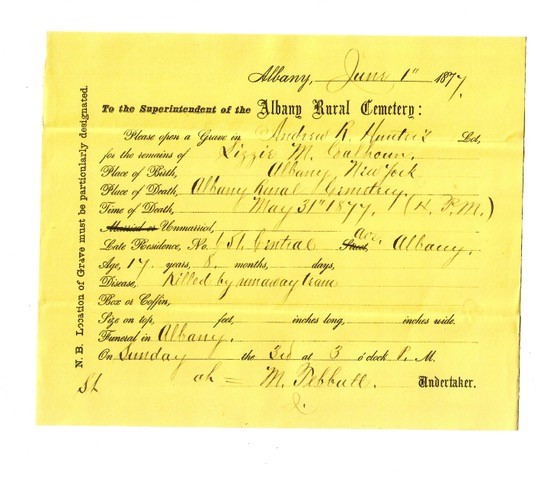 Albany, June 1" 1877,
To the Superintendent of the Albany Rural Cemetery:
Please open a Grave in Andrew R. Hunter's Lot,
for the remains of Lizzie M. Calhoun.
Place of Birth, Albany, New York
Place of Death, Albany Rural Cemetery.
Time of Death, May 31" 1877. P.M.)
Married or Unmarried,
Late Residence, No. 651. Central Ave. Street, Albany.
Age, 17 years, 8 months, days,
Disease, Killed by runaway team
Box or Coffin,
Size on top, feet, inches long, inches wide.
Funeral in Albany.
On Sunday the 3rd at 3 o'clock P. M.
M. Tebbutt. Undertaker.
N. B. Location of Grave must be particularly designated.